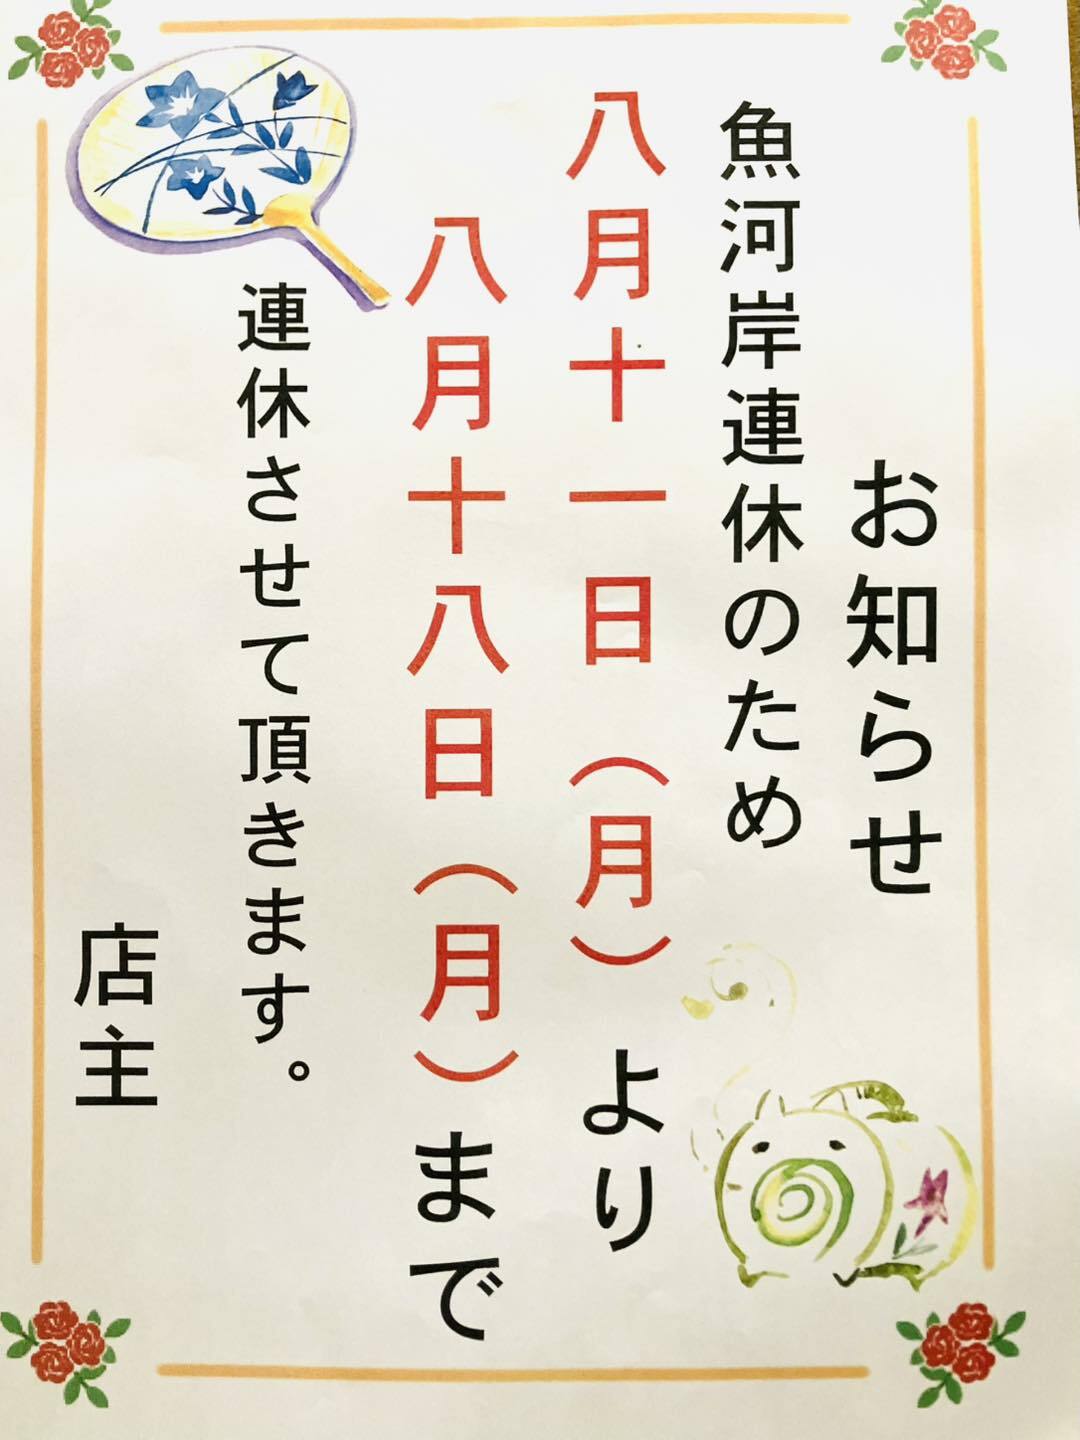 お知らせ
魚河岸連休のため
八月十一日（月）より
八月十八日（月）まで
連休させて頂きます。
店主